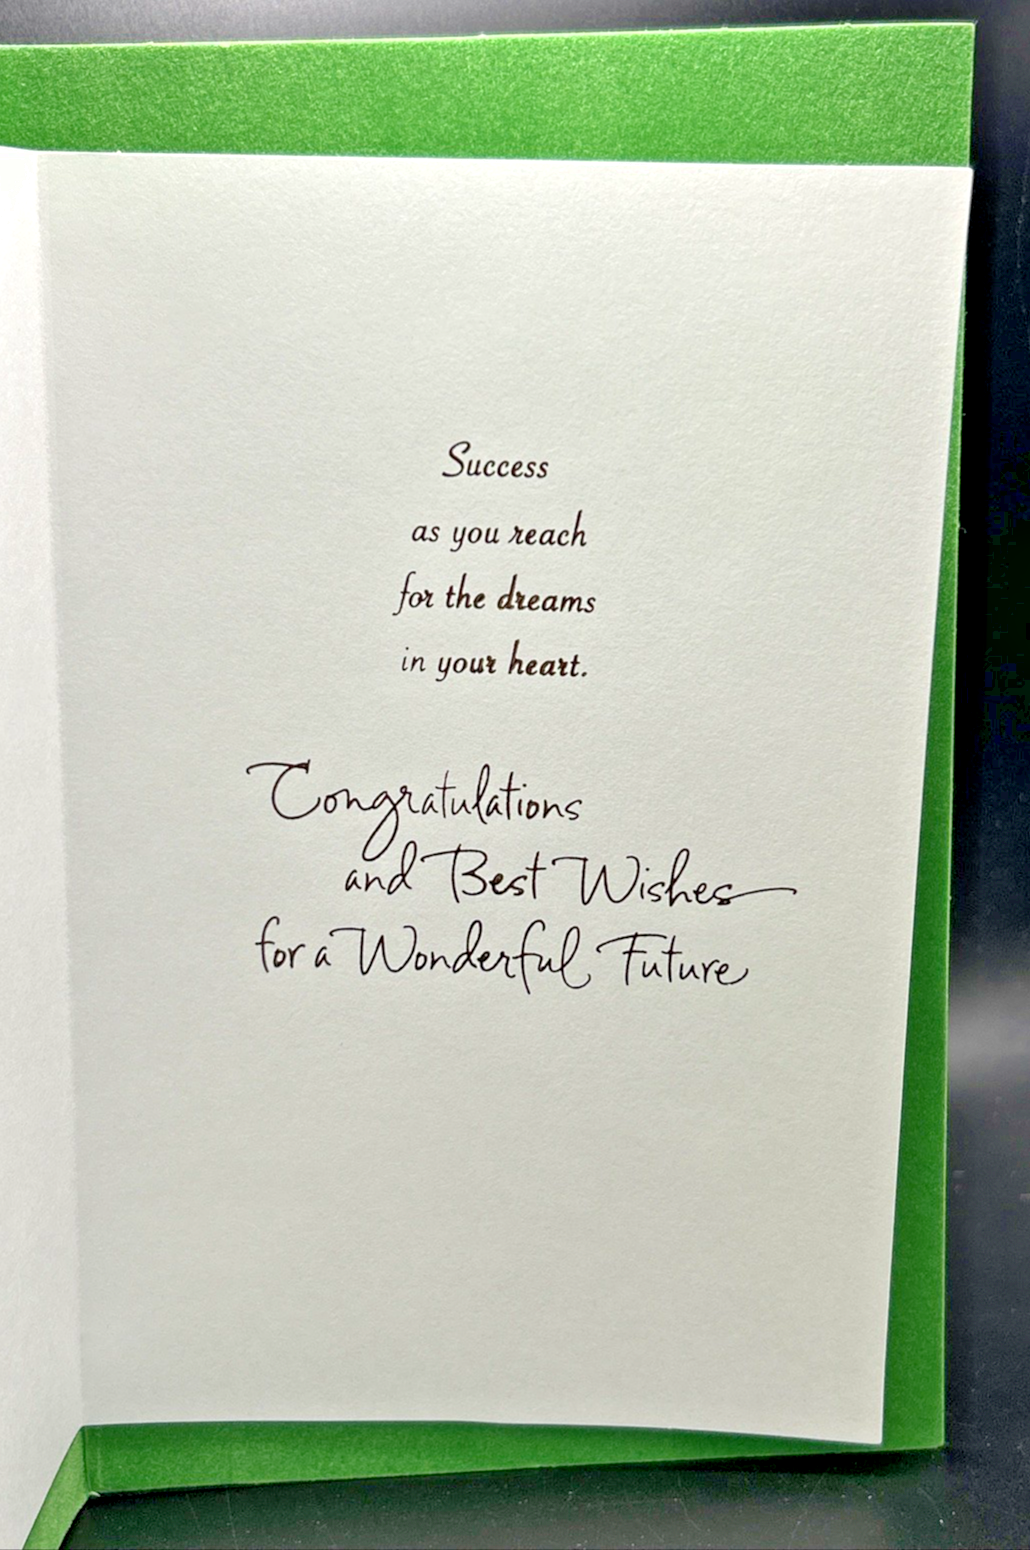 Success
as you reach
for the dreams
in your heart.
Congratulations
and Best Wishes
for a Wonderful Future